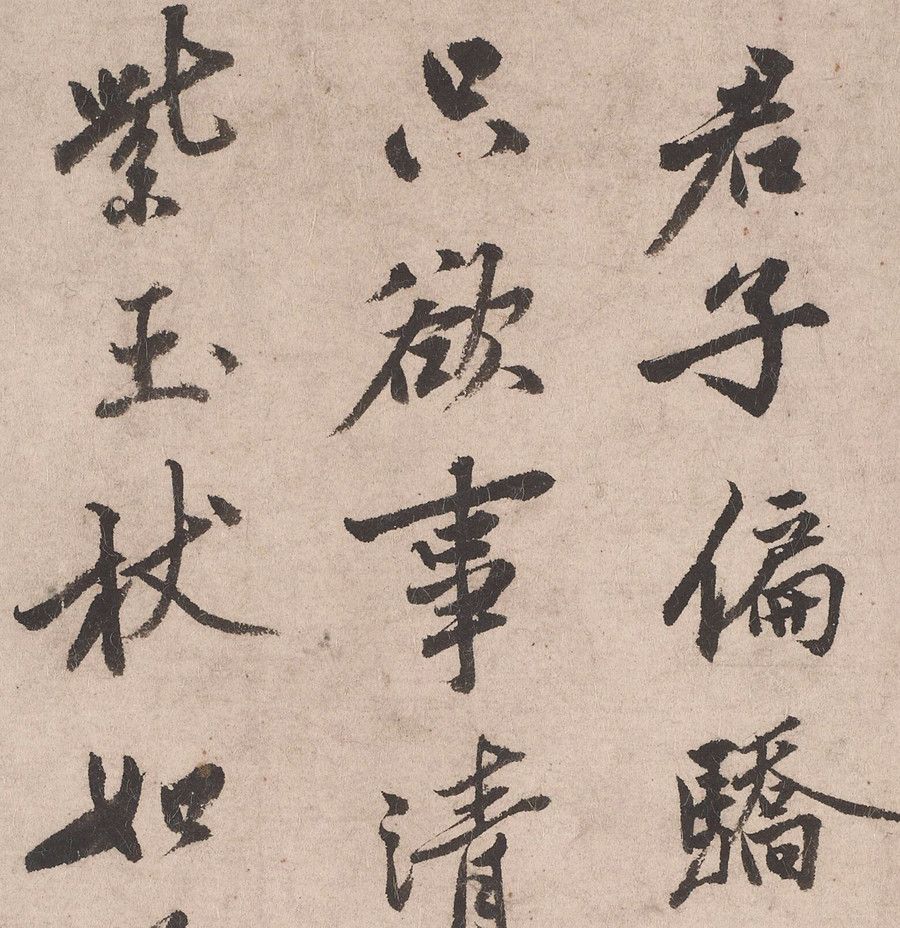 君子偏驕
只欲事清
紫玉杖如